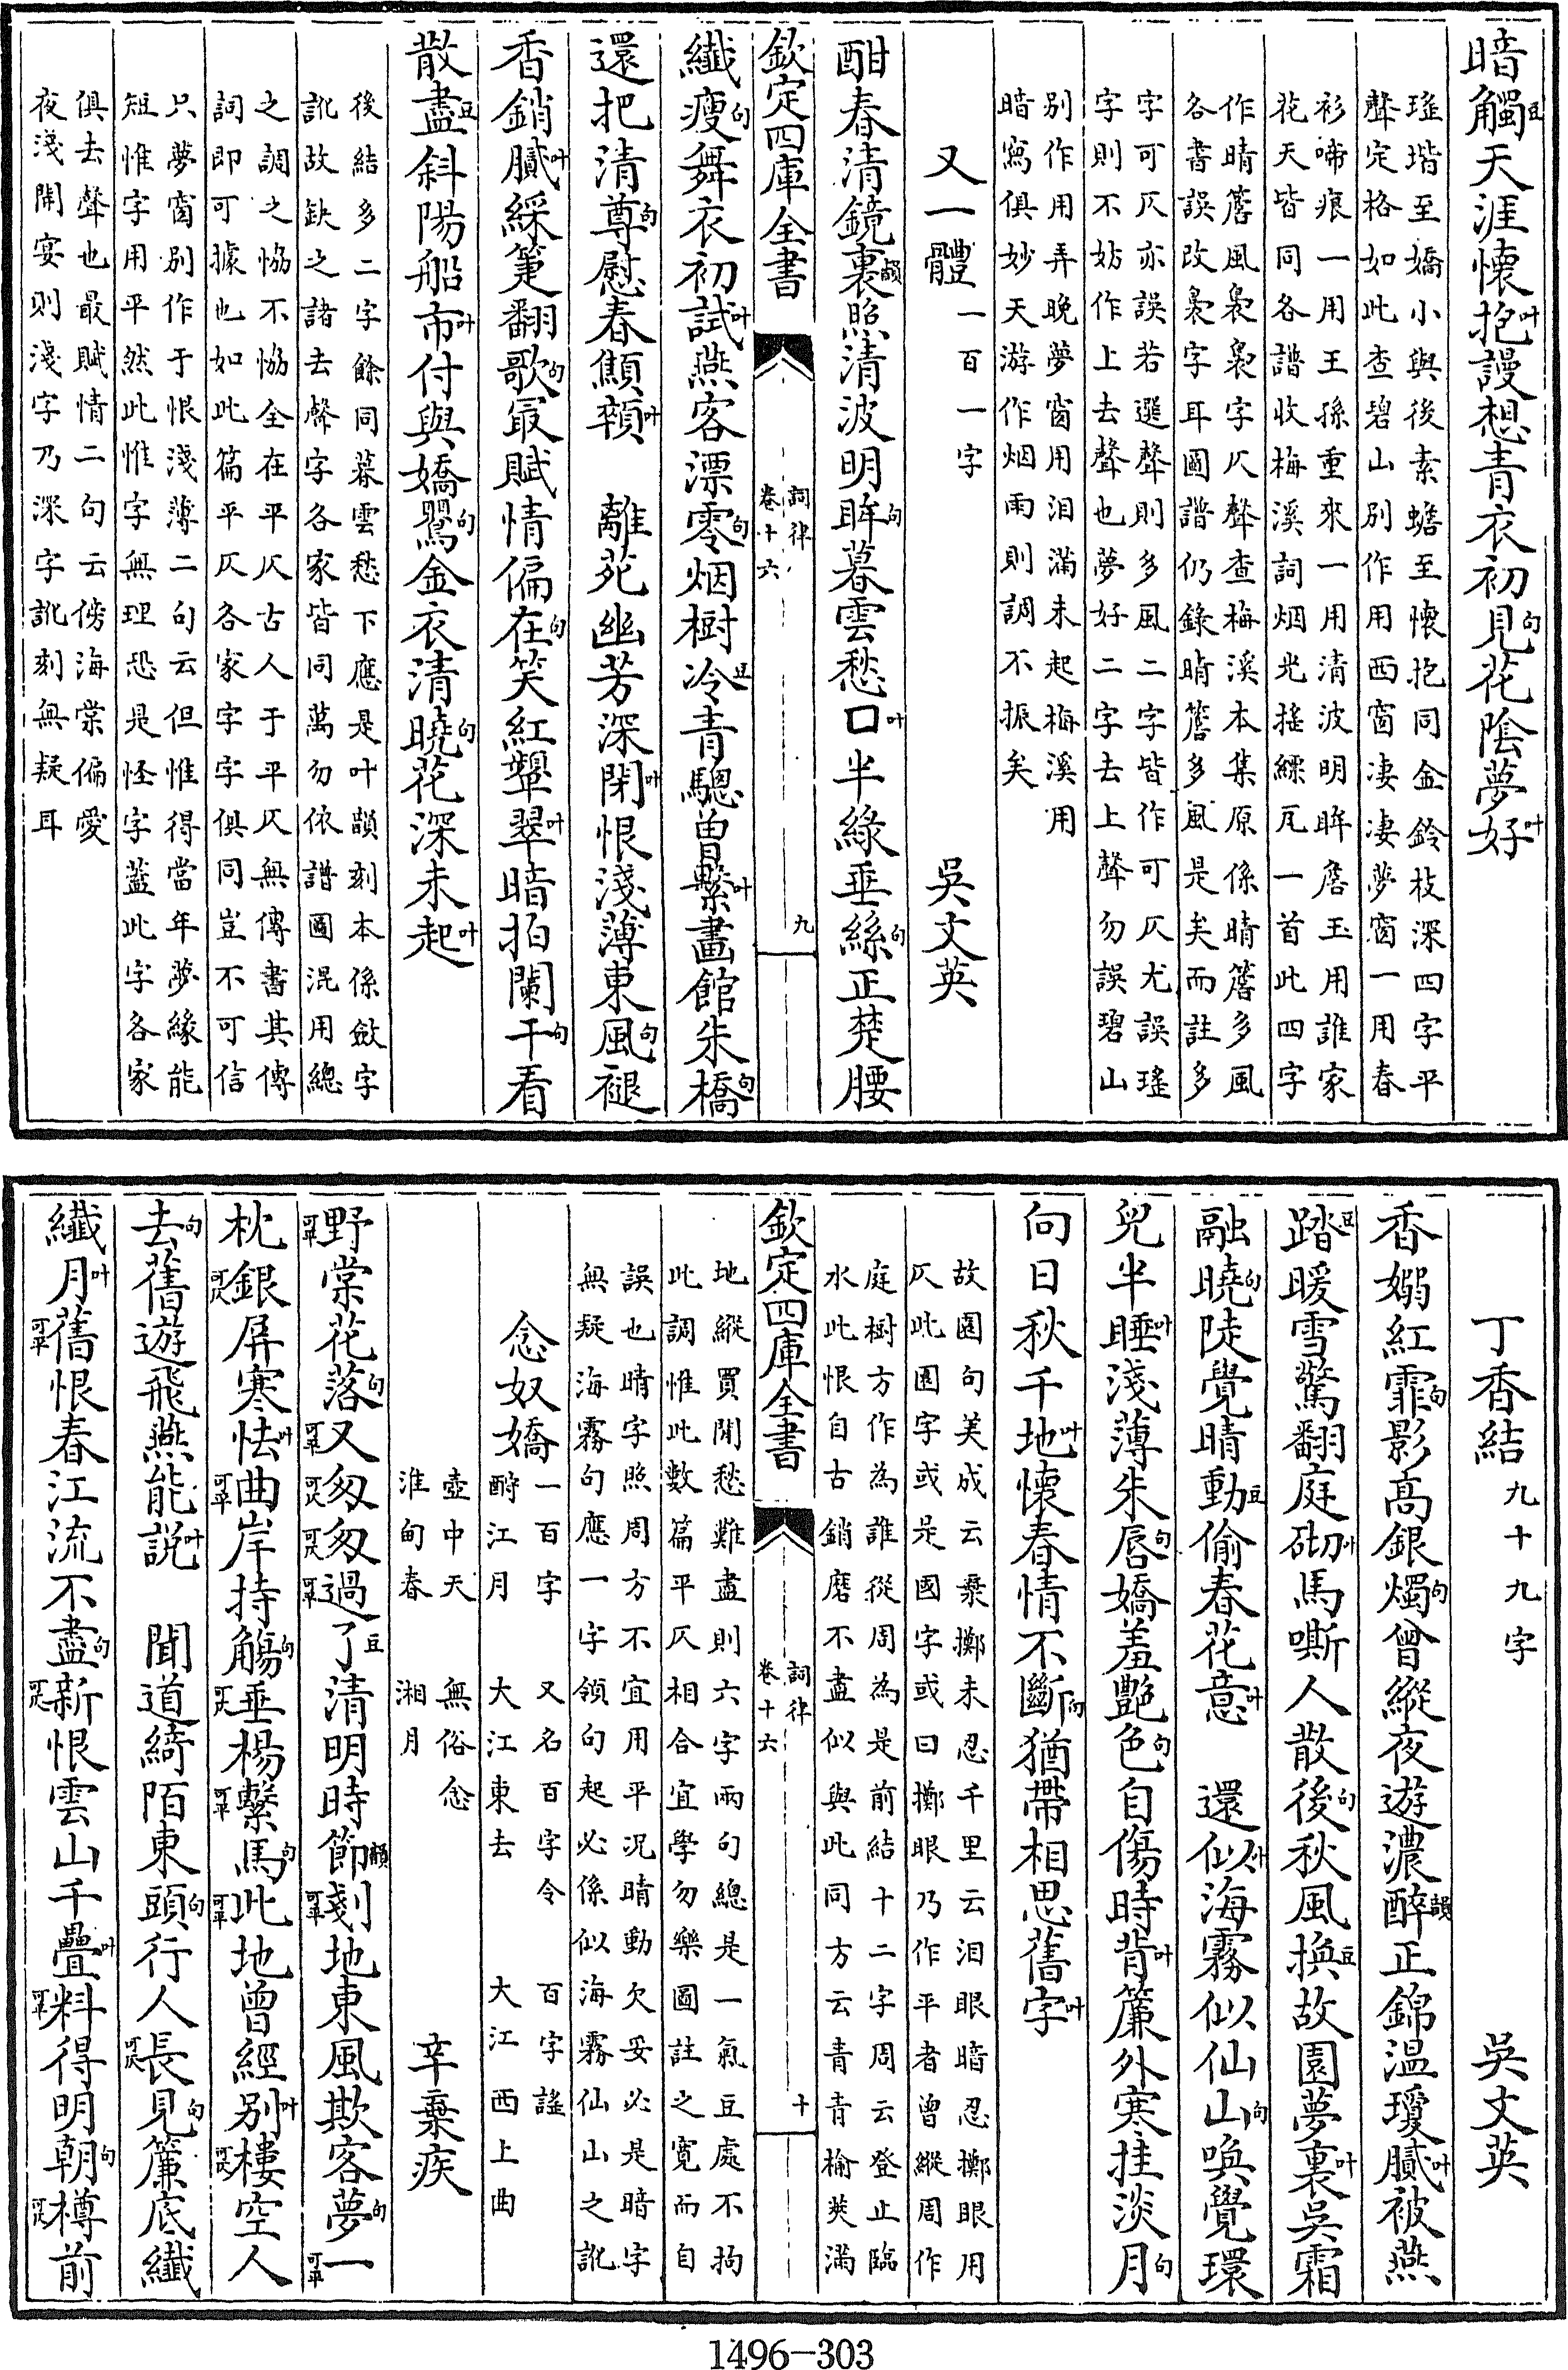 暗觸豆天涯懷抱叶謾想青衣初見句花陰夢好叶
瑤堦至嬌小與後素蟾至懷抱同金鈴枝深四字平
聲定格如此查碧山別作用西窗凄凄夢窗一用春
衫啼痕一用王孫重來一用清波明眸詹玉用誰家
花天皆同各譜收梅溪詞烟光搖縹瓦一首此四字
作晴簷風裊裊字仄聲查梅溪本集原係晴簷多風
各書誤改裊字耳圖譜仍錄晴簷多風是矣而註多
字可仄亦誤若選聲則多風二字皆作可仄尤誤瑤
字則不妨作上去聲也夢好二字去上聲勿誤碧山
別作用弄晚夢窗用泪滿未起梅溪用
暗寫俱妙天游作烟雨則調不振矣
又一體 一百一字 吳文英
酣春清鏡裏韻照清波明眸句暮雲愁口叶半綠垂絲句正楚腰
欽定四庫全書 詞律 卷十六 九
纖瘦句舞衣初試叶燕客漂零句烟樹冷豆青驄曾繫叶畫館朱橋句
還把清尊句慰春顦顇叶 離苑幽芳深閉叶恨淺薄東風句褪
香銷膩叶綵箑翻歌句最賦情偏在句笑紅顰翠叶暗拍闌干句看
散盡豆斜陽船市叶付與嬌鸎句金衣清曉句花深未起叶
後結多二字餘同暮雲愁下應是叶韻刻本係斂字
訛故缺之諸去聲字各家皆同萬勿依譜圖混用總
之調之恊不恊全在平仄古人于平仄無傳書其傳
詞即可據也如此篇平仄各家字字俱同豈不可信
只夢窗別作于恨淺薄二句云但惟得當年夢緣能
短惟字用平然此惟字無理恐是怪字葢此字各家
俱去聲也最賦情二句云傍海棠偏愛
夜淺開宴則淺字乃深字訛刻無疑耳
丁香結 九十九字 吳文英
香嫋紅霏句影高銀燭句曾縱夜遊濃醉韻正錦温瓊膩叶被燕
踏豆暖雪驚翻庭砌叶馬嘶人散後句秋風換豆故園夢裏叶吳霜
融曉句陡覺晴動豆偷春花意叶 還似叶海霧似仙山句喚覺環
兒半睡叶淺薄朱唇句嬌羞艷色句自傷時背叶簾外寒挂淡月句
向日秋千地叶懷春情不斷句猶帶相思舊字叶
故園句美成云棄擲未忍千里云泪眼暗忍擲眼用
仄此園字或是國字或曰擲眼乃作平者曾縱周作
庭樹方作為誰從周為是前結十二字周云登止臨
水此恨自古銷磨不盡似與此同方云青青榆莢滿
欽定四庫全書 詞律 卷十六 十
地縱買閒愁難盡則六字兩句總是一氣豆處不拘
此調惟此數篇平仄相合宜學勿樂圖註之寬而自
誤也晴字照周方不宜用平况晴動欠妥必是暗字
無疑海霧句應一字領句起必係似海霧仙山之訛
念奴嬌 一百字 又名百字令 百字謠
酹江月 大江東去 大江西上曲
壺中天 無俗念
淮甸春 湘月 辛棄疾
可平野棠花落句可平又可仄匆可仄匆可平過了豆清明時節韻可平剗地東風欺客夢句可平一
枕可仄銀屏寒怯叶可平曲岸持觴句可仄垂楊可平繫馬句可平此地曾經別叶可仄樓空人
去句舊遊飛燕能說叶 聞道綺陌東頭句行人可仄長見句簾底纖
纖月叶可平舊恨春江流不盡句可仄新恨雲山千疊叶可平料得明朝句可仄樽前
1496-303